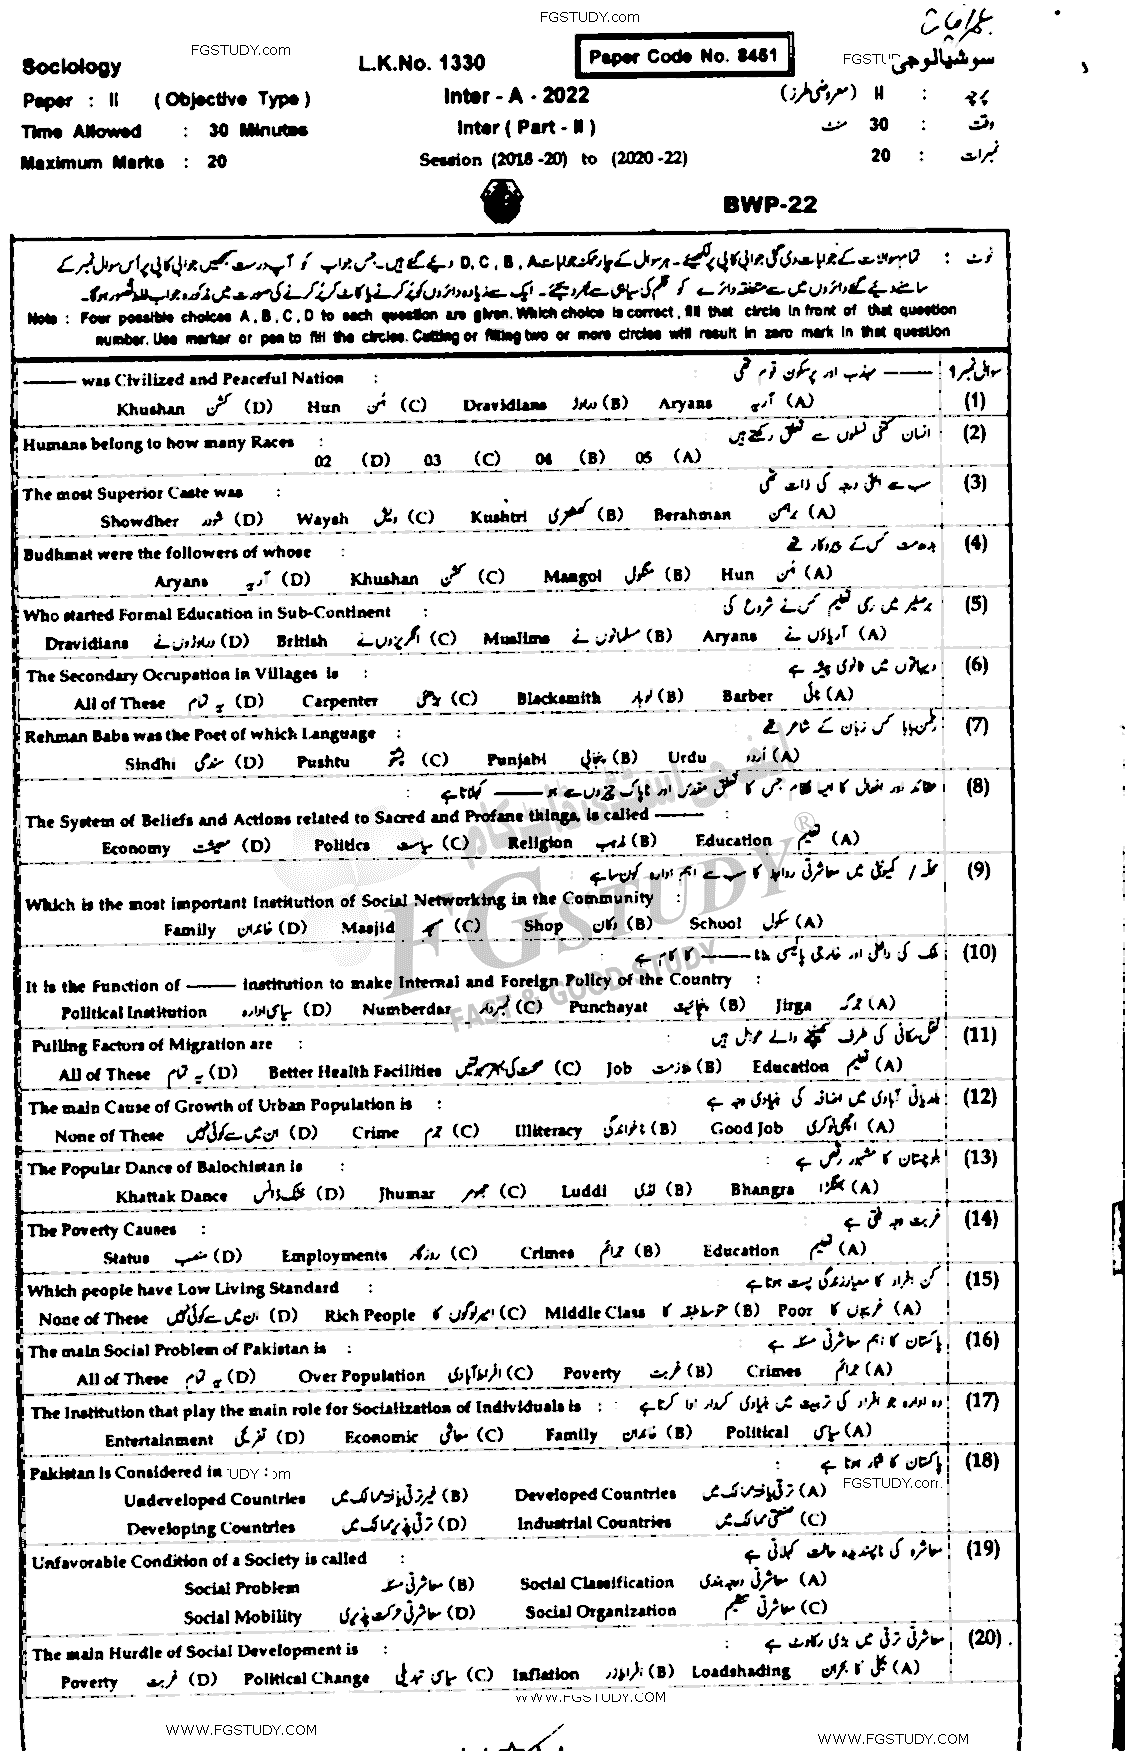 FGSTUDY.com
FGSTUDY.com
Sociology L.K.No. 1330 Paper Code No. 8461 سوشیالوجی
Paper : II (Objective Type) Inter - A - 2022 پرچہ : II (معروضی طرز)
Time Allowed : 30 Minutes Inter (Part - II) وقت : 30 منٹ
Maximum Marks : 20 Session (2018 -20) to (2020 -22) نمبرات : 20
BWP-22
نوٹ : تمام سوالات کے جوابات دی گئی جوابی کاپی پر لکھیئے۔ ہر سوال کے چار ممکنہ جوابات D, C, B, A دیئے گئے ہیں۔ جس جواب کو آپ درست سمجھیں جوابی کاپی پر اُس سوال نمبر کے
سامنے دیئے گئے دائروں میں سے متعلقہ دائرے کو قلم کی سیاہی سے بھر دیجئے۔ ایک سے زیادہ دائروں کو پُر کرنے یا کاٹ کر پُر کرنے کی صورت میں مذکورہ جواب غلط تصور ہوگا۔
Note : Four possible choices A, B, C, D to each question are given. Which choice is correct, fill that circle in front of that question
number. Use marker or pen to fill the circles. Cutting or filling two or more circles will result in zero mark in that question
——— was Civilized and Peaceful Nation : ——— مہذب اور پرسکون قوم تھی سوال نمبر 1
Khushan کشن (D) Hun ہُن (C) Dravidians دراوڑ (B) Aryans آریہ (A) (1)
Humans belong to how many Races : انسان کتنی نسلوں سے تعلق رکھتے ہیں (2)
02 (D) 03 (C) 04 (B) 05 (A)
The most Superior Caste was : سب سے اعلیٰ درجہ کی ذات تھی (3)
Showdher شودر (D) Waysh ویش (C) Kushtri کھشتری (B) Berahman برہمن (A)
Budhmat were the followers of whose : بدھ مت کس کے پیروکار تھے (4)
Aryans آریہ (D) Khushan کشن (C) Mangol منگول (B) Hun ہُن (A)
Who started Formal Education in Sub-Continent : برصغیر میں رسمی تعلیم کس نے شروع کی (5)
Dravidians دراوڑوں نے (D) British انگریزوں نے (C) Muslims مسلمانوں نے (B) Aryans آریاؤں نے (A)
The Secondary Occupation in Villages is : دیہاتوں میں ثانوی پیشہ ہے (6)
All of These یہ تمام (D) Carpenter بڑھئی (C) Blacksmith لوہار (B) Barber نائی (A)
Rehman Baba was the Poet of which Language : رحمٰن بابا کس زبان کے شاعر تھے (7)
Sindhi سندھی (D) Pushtu پشتو (C) Punjabi پنجابی (B) Urdu اُردو (A)
عقائد اور افعال کا ایسا نظام جس کا تعلق مقدس اور ناپاک چیزوں سے ہو ——— کہلاتا ہے : (8)
The System of Beliefs and Actions related to Sacred and Profane things, is called ——— :
Economy معیشت (D) Politics سیاست (C) Religion مذہب (B) Education تعلیم (A)
محلہ / کمیونٹی میں معاشرتی روابط کا سب سے اہم ادارہ کون سا ہے (9)
Which is the most important Institution of Social Networking in the Community :
Family خاندان (D) Masjid مسجد (C) Shop دکان (B) School سکول (A)
ملک کی داخلی اور خارجی پالیسی بنانا ——— کا کام ہے (10)
It is the Function of ——— institution to make Internal and Foreign Policy of the Country :
Political Institution سیاسی ادارہ (D) Numberdar نمبردار (C) Punchayat پنچائیت (B) Jirga جرگہ (A)
Pulling Factors of Migration are : نقل مکانی کی طرف کھینچنے والے عوامل ہیں (11)
All of These یہ تمام (D) Better Health Facilities صحت کی بہتر سہولتیں (C) Job ملازمت (B) Education تعلیم (A)
The main Cause of Growth of Urban Population is : بلدیاتی آبادی میں اضافہ کی بنیادی وجہ ہے (12)
None of These ان میں سے کوئی نہیں (D) Crime جرم (C) Illiteracy ناخواندگی (B) Good Job اچھی نوکری (A)
The Popular Dance of Balochistan is : بلوچستان کا مشہور رقص ہے (13)
Khattak Dance خٹک ڈانس (D) Jhumar جھومر (C) Luddi لڈی (B) Bhangra بھنگڑا (A)
The Poverty Causes : غربت وجہ بنتی ہے (14)
Status منصب (D) Employments روزگار (C) Crimes جرائم (B) Education تعلیم (A)
Which people have Low Living Standard : کن افراد کا معیار زندگی پست ہوتا ہے (15)
None of These ان میں سے کوئی نہیں (D) Rich People امیر لوگوں کا (C) Middle Class متوسط طبقہ کا (B) Poor غریبوں کا (A)
The main Social Problem of Pakistan is : پاکستان کا اہم معاشرتی مسئلہ ہے (16)
All of These یہ تمام (D) Over Population افراط آبادی (C) Poverty غربت (B) Crimes جرائم (A)
The Institution that play the main role for Socialization of Individuals is : وہ ادارہ جو افراد کی تربیت میں بنیادی کردار ادا کرتا ہے (17)
Entertainment تفریحی (D) Economic معاشی (C) Family خاندان (B) Political سیاسی (A)
Pakistan is Considered in : پاکستان کا شمار ہوتا ہے (18)
FGSTUDY.com
Undeveloped Countries غیر ترقی یافتہ ممالک میں (B) Developed Countries ترقی یافتہ ممالک میں (A)
Developing Countries ترقی پذیر ممالک میں (D) Industrial Countries صنعتی ممالک میں (C)
Unfavorable Condition of a Society is called : معاشرہ کی ناپسندیدہ حالت کہلاتی ہے (19)
Social Problem معاشرتی مسئلہ (B) Social Classification معاشرتی درجہ بندی (A)
Social Mobility معاشرتی حرکت پذیری (D) Social Organization معاشرتی تنظیم (C)
The main Hurdle of Social Development is : معاشرتی ترقی میں بڑی رکاوٹ ہے : (20)
Poverty غربت (D) Political Change سیاسی تبدیلی (C) Inflation افراط زر (B) Loadshading بجلی کا بحران (A)
WWW.FGSTUDY.COM
WWW.FGSTUDY.COM
WWW.FGSTUDY.COM
FGSTUDY
FAST & GOOD STUDY